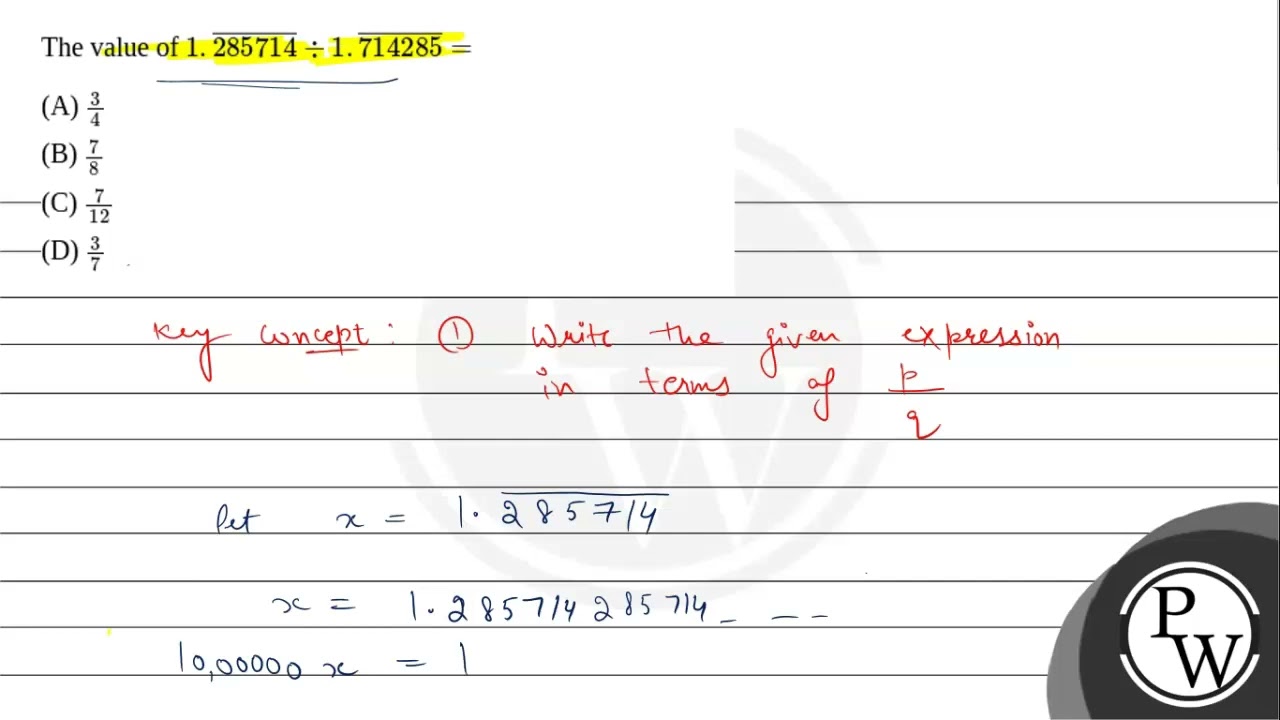 The value of 1. \overline{285714} ÷ 1. \overline{714285} =
(A) 3/4
(B) 7/8
(C) 7/12
(D) 3/7
Key concept : ① Write the given expression
in terms of p/q
let x = 1. \overline{285714}
x = 1. 285714 285714 _ _ _
10,00000 x = 1
PW